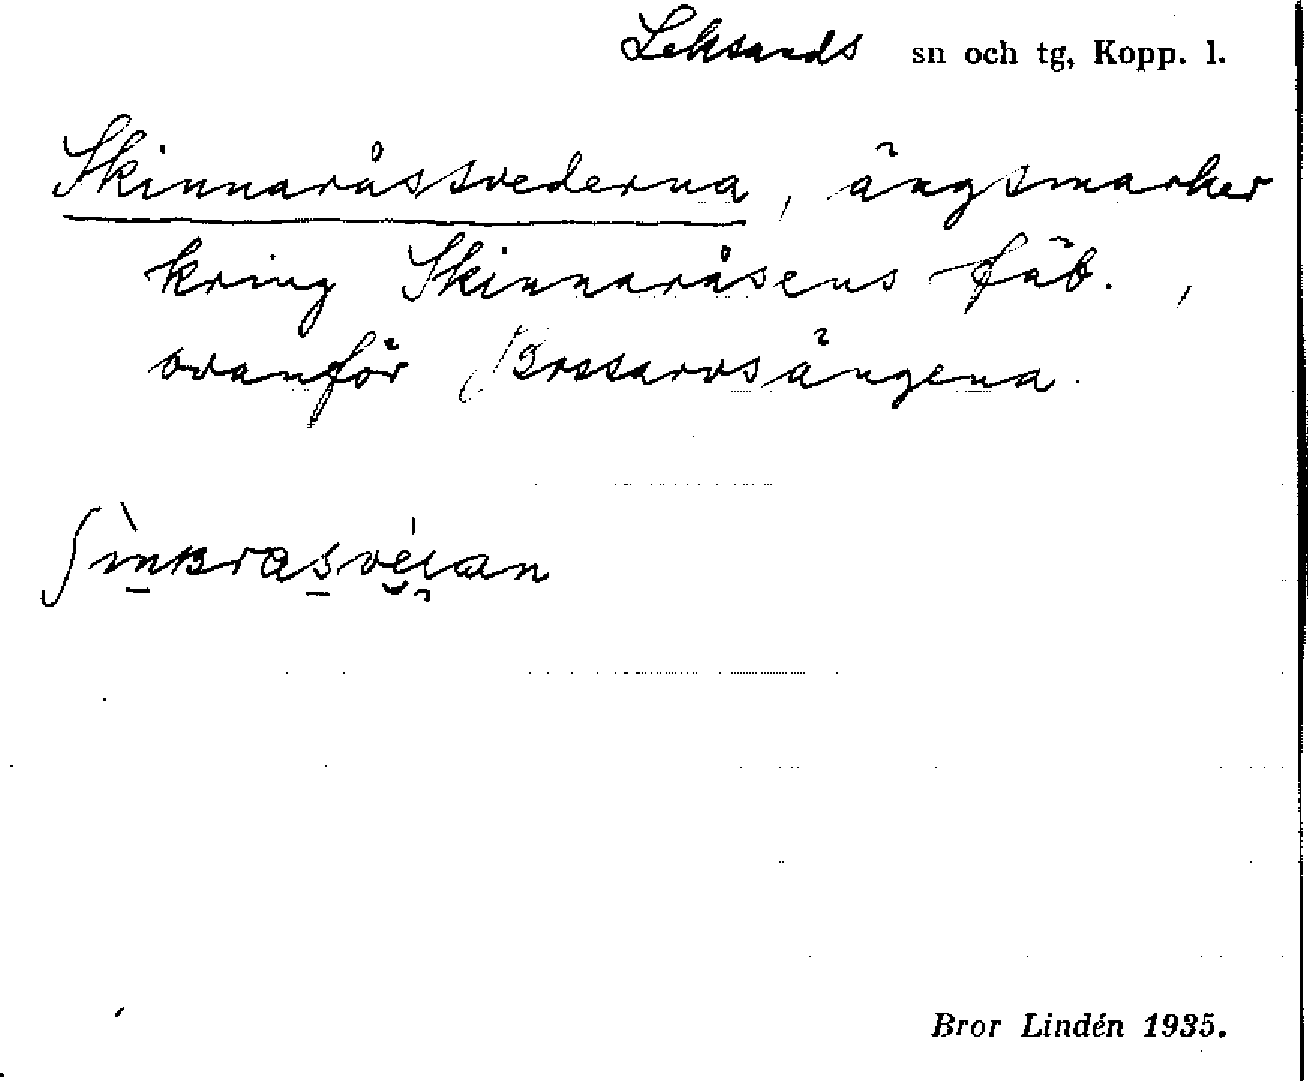 Leksands sn och tg, Kopp. l.
Skinnaråssvederna, ängsmarker
kring Skinnaråsens fäb.,
ovanför Brossarvsängena.
Bror Lindén 1935.